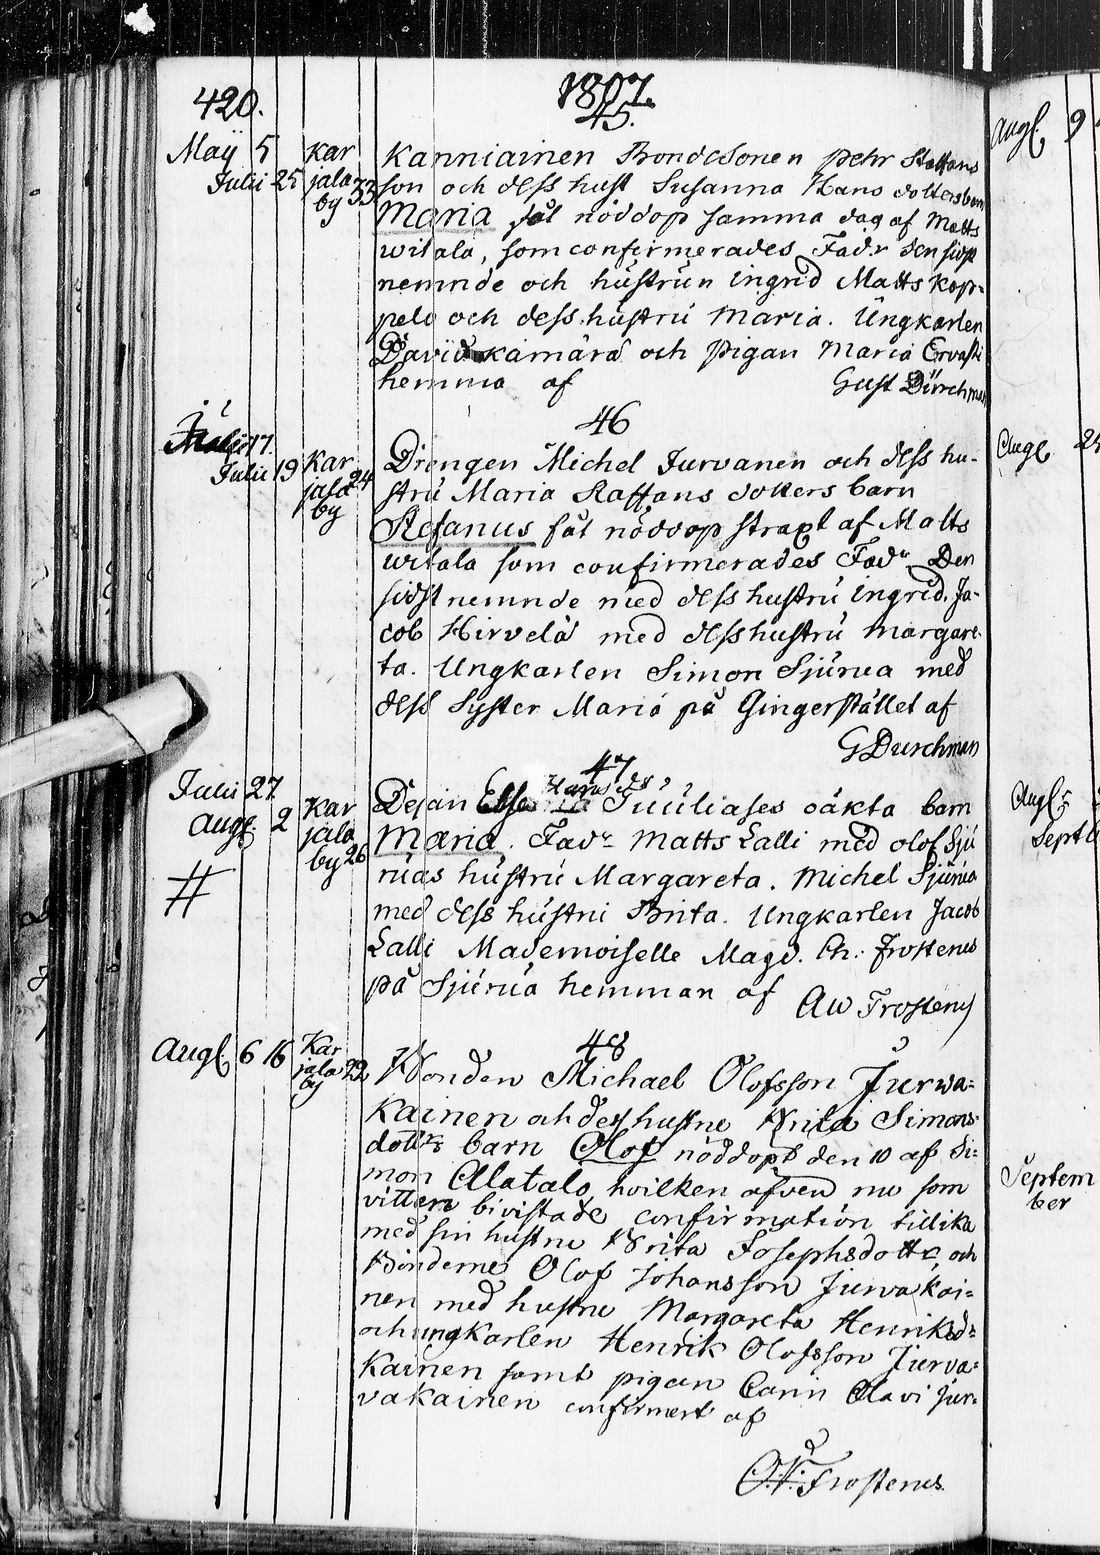 420.
1807.
45.
Maÿ 5
Julii 25
Kar
jala
by 33
Kanniainen Bondesonen Pehr Staffans
son och dess hust Susanna Hans dotters barn
Maria fåt nöddop samma dag af Matts
witala, som confirmerades Fad.r den sidst
nemnde och hustrun Ingrid Matts Kop-
pelo och dess hustru Maria. Ungkarlen
David kämärä och Pigan Maria Ervasti
hemma af Gust Dürchman
46
17.
Julii 19
Kar
jala 24
by
Drengen Michel Jurvanen och dess hu-
stru Maria Staffans dotters barn
Stefanus fåt nöddop straxt af Matts
witala som confirmerades Fadr Den
sidst nemnde med dess hustru Ingrid. Ja-
cob Hirvelä med dess hustru Margare-
ta. Ungkarlen Simon Sjurua med
dess Syster Maria på Gingerstället af
G Durchman
47
Julii 27
Augt. 2
Kar
jala
by 26
#
Hans ds
Dejan Juuliases oäkta barn
Maria. Fadr Matts Lalli med olof Sju
ruas hustru Margareta. Michel Sjurua
med dess hustru Brita. Ungkarlen Jacob
Lalli Mademoiselle Magd. Ch: Frostenus
på Sjurua hemman af AW Frostenus
48
Augt. 6 16
Kar
jala 22
by
Bonden Michael Olofsson Jurwa-
kainen och dess hustru Brita Simons-
dotters barn Olof nöddopt den 10 af Si-
mon Alatalo, hvilken äfven nu som
vittere bivistade confirmation tillika
med sin hustru Brita Josephsdotter, och
Bönderne Olof Johansson Jurvakai-
nen med hustru Margareta Henriksdr
och ungkarlen Henrik Olofsson Jurva-
kainen samt pigan Carin Olavi Jur-
vakainen confirmert af
Frostenus
Augt. 9
Augt
Augt.
Septb
Septem
ber